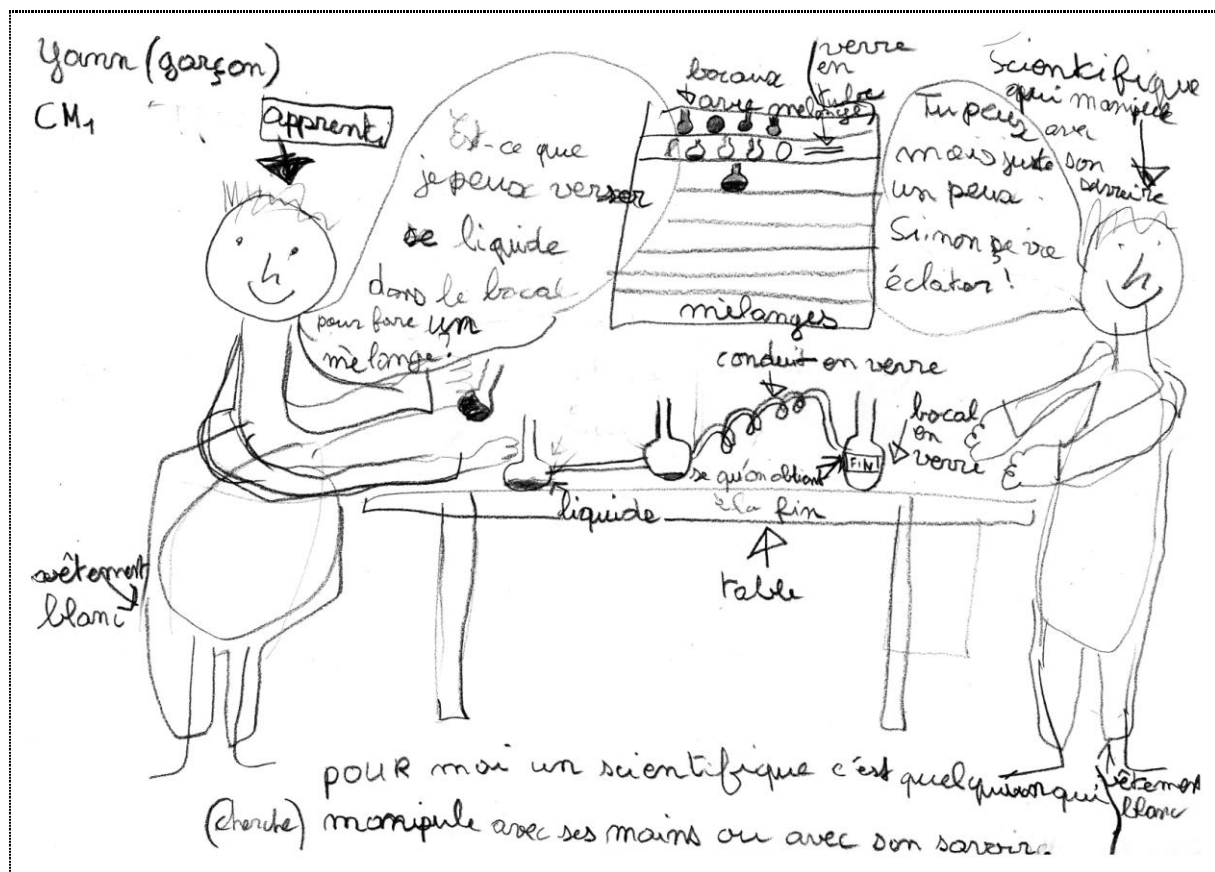 Yann (garçon)
CM1
apprenti
Est-ce que
je peux verser
se liquide
dans le bocal
pour faire un
mélange?
bocaux
avec mélanges
verre
en
tube
mélanges
Scientifique
qui manipule
avec
son
savoire
Tu peux
mais juste
un peux.
Sinon ça va
éclator!
conduit en verre
bocal
en
verre
FIN
se qu'on obtient
à la fin
liquide
table
vêtement
blanc
vêtement
blanc
pour moi un scientifique c'est quelqu'un qui
(cherche) manipule avec ses mains ou avec son savoir.